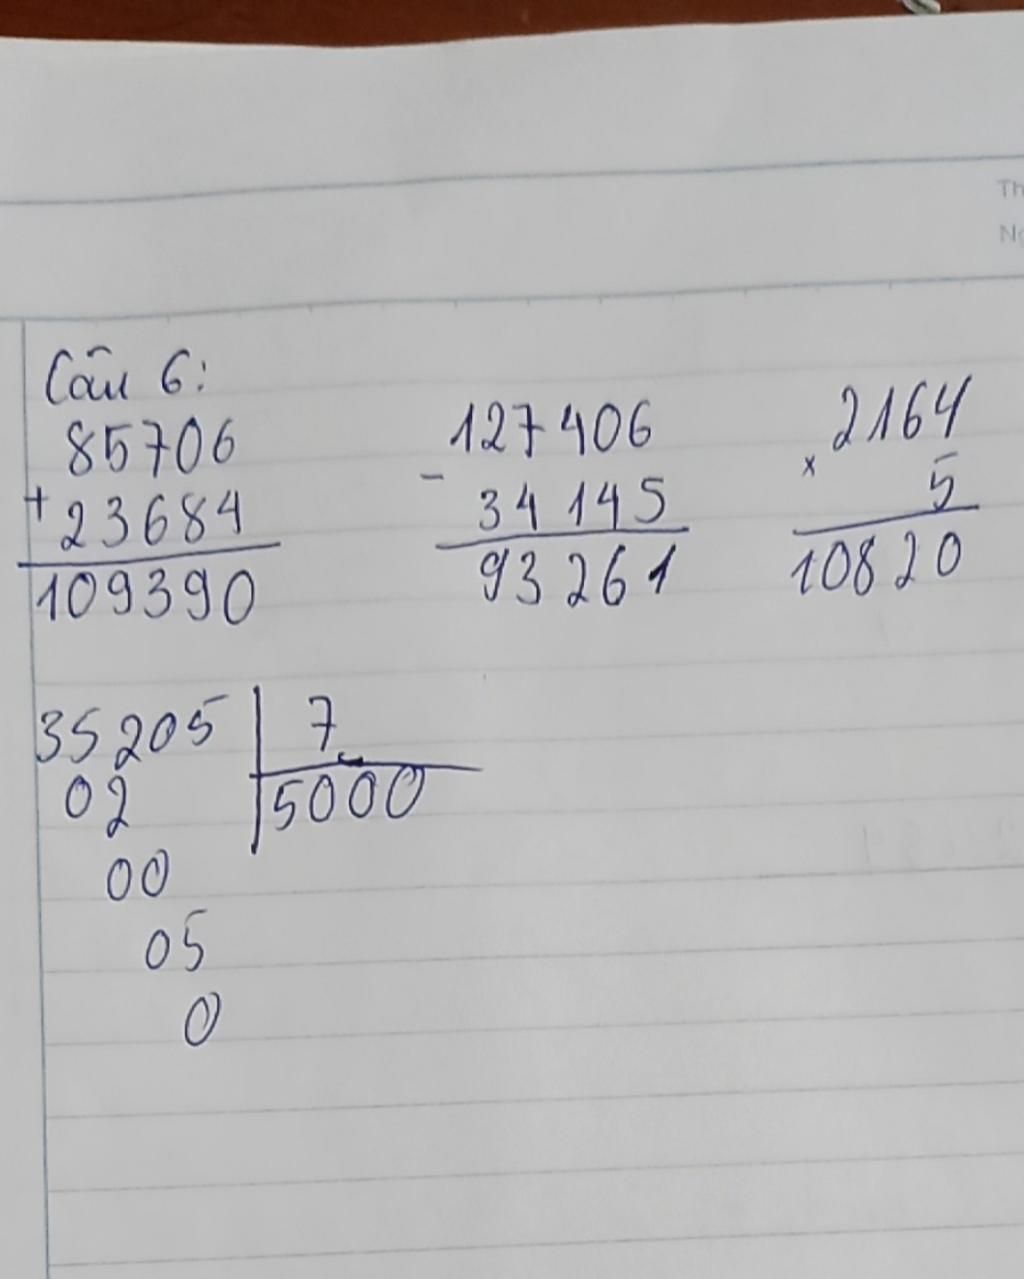 Câu 6:
85706
+
23684
109390
127406
-
34145
93261
2164
x
5
10820
35205 7
02 5000
00
05
0